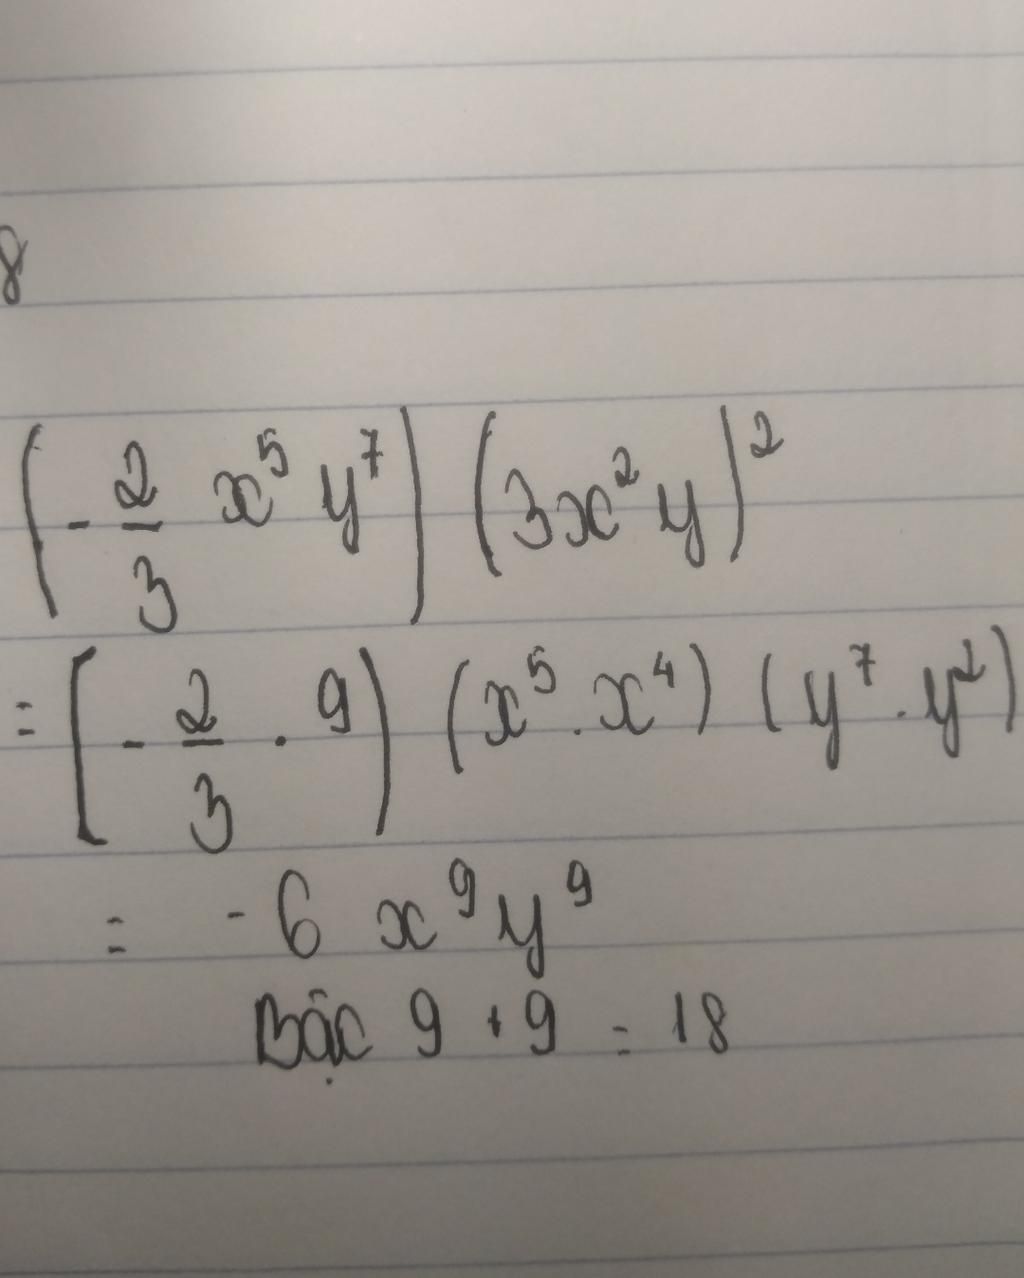 8
(-2/3 x⁵ y⁷) (3x² y)²
= [-2/3 . 9) (x⁵ . x⁴) (y⁷ . y²)
= -6 x⁹ y⁹
Bậc 9 + 9 = 18